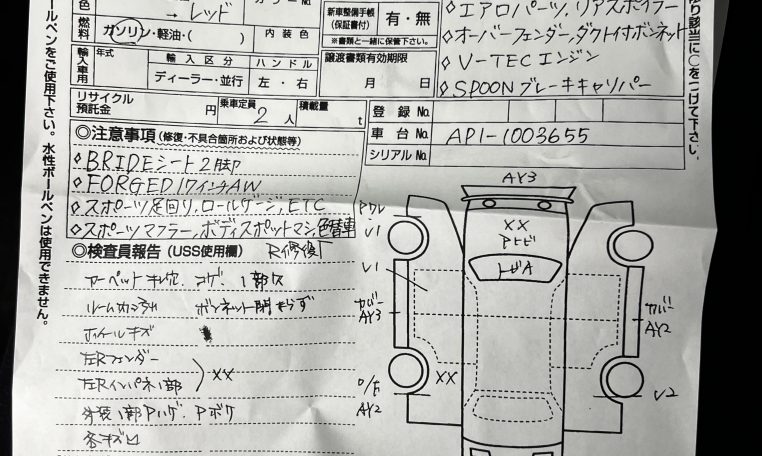 → レッド
燃料 ガソリン・軽油・( ) 内装色
輸入車用 年式 輸入区分 ハンドル
ディーラー・並行 左・右
新車整備手帳(保証書付) 有・無
※書類と一緒に保管下さい。
譲渡書類有効期限
月 日
◇エアロパーツ、リアスポイラー
◇オーバーフェンダー、ダクト付ボンネット
◇V-TECエンジン
◇SPOONブレーキキャリパー
リサイクル預託金 円 乗車定員 2人 積載量 t
登録No.
車台No. AP1-1003655
シリアルNo.
◎注意事項(修復・不具合箇所および状態等)
◇BRIDEシート2脚
◇FORGED17インチAW
◇スポーツ足回り、ロールゲージ、ETC
◇スポーツマフラー、ボディスポットマシ 色替車
◎検査員報告(USS使用欄)
カーペットキレ穴 コゲ、1部欠
ボンネット閉まらず
ホイールキズ
左Rフェンダー
左Rインパネ1部 XX
外装1部Pハゲ、Pボケ
各キズ凹
AY3
XX
Pトビ
トビA
V1
V1
カバー AY3
カバー AY2
XX
AY2
V2
ボールペンをご使用下さい。水性ボールペンは使用できません。
り該当に○をつけて下さい。